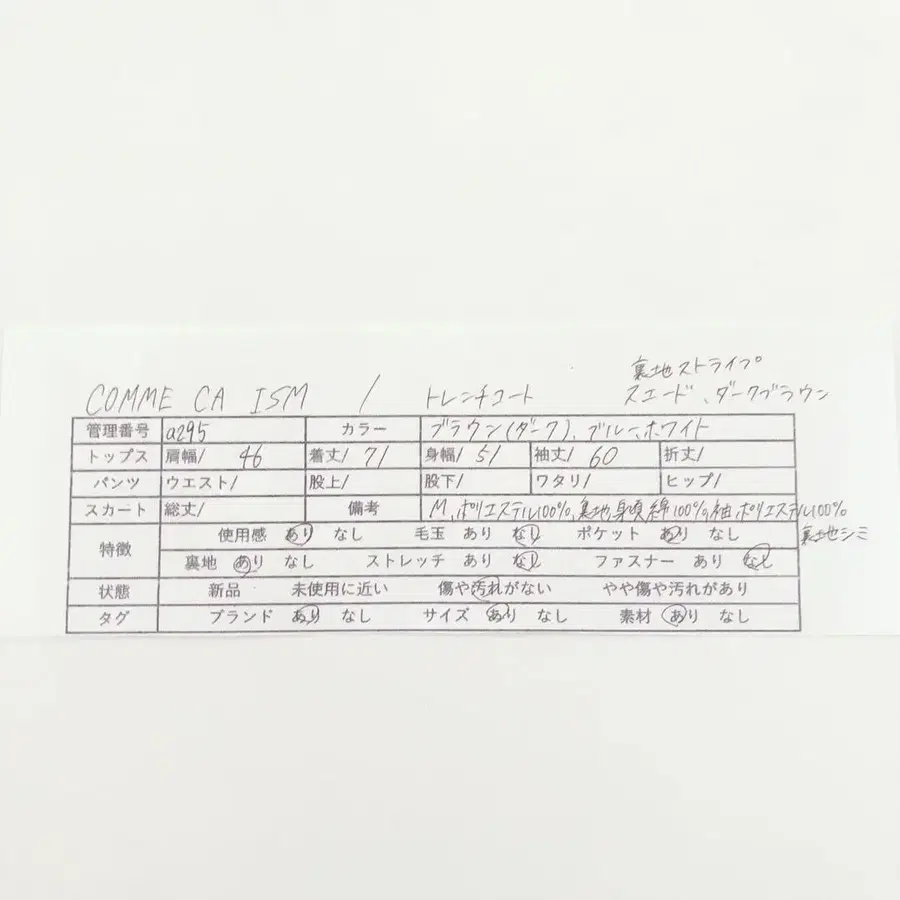 裏地ストライプ
COMME CA ISM / トレンチコート スエード、ダークブラウン
管理番号 a295 カラー ブラウン(ダーク)、ブルー、ホワイト
トップス 肩幅/ 46 着丈/ 71 身幅/ 51 袖丈/ 60 折丈/
パンツ ウエスト/ 股上/ 股下/ ワタリ/ ヒップ/
スカート 総丈/ 備考 M、ポリエステル100%、裏地身頃綿100%、袖ポリエステル100%
特徴 使用感 あり なし 毛玉 あり なし ポケット あり なし 裏地シミ
裏地 あり なし ストレッチ あり なし ファスナー あり なし
状態 新品 未使用に近い 傷や汚れがない やや傷や汚れがあり
タグ ブランド あり なし サイズ あり なし 素材 あり なし